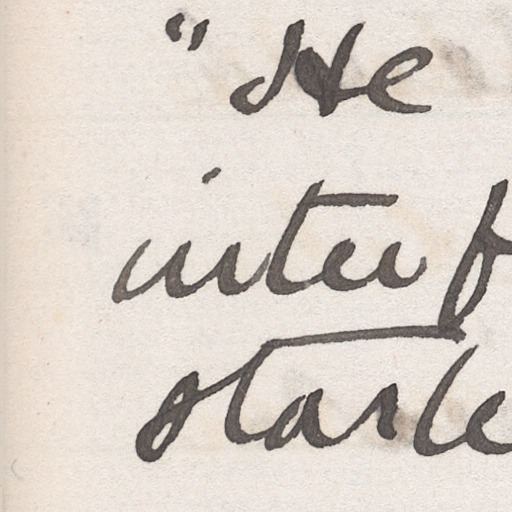 "He
interf
starte